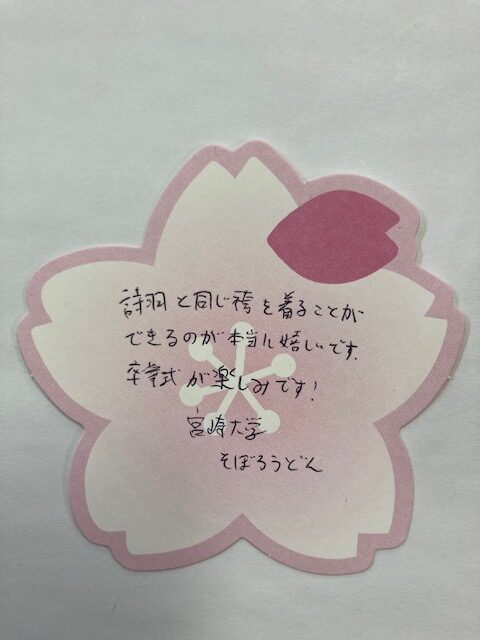 詩羽と同じ袴を着ることが
できるのが本当に嬉しいです.
卒業式が楽しみです!
宮崎大学
そぼろうどん